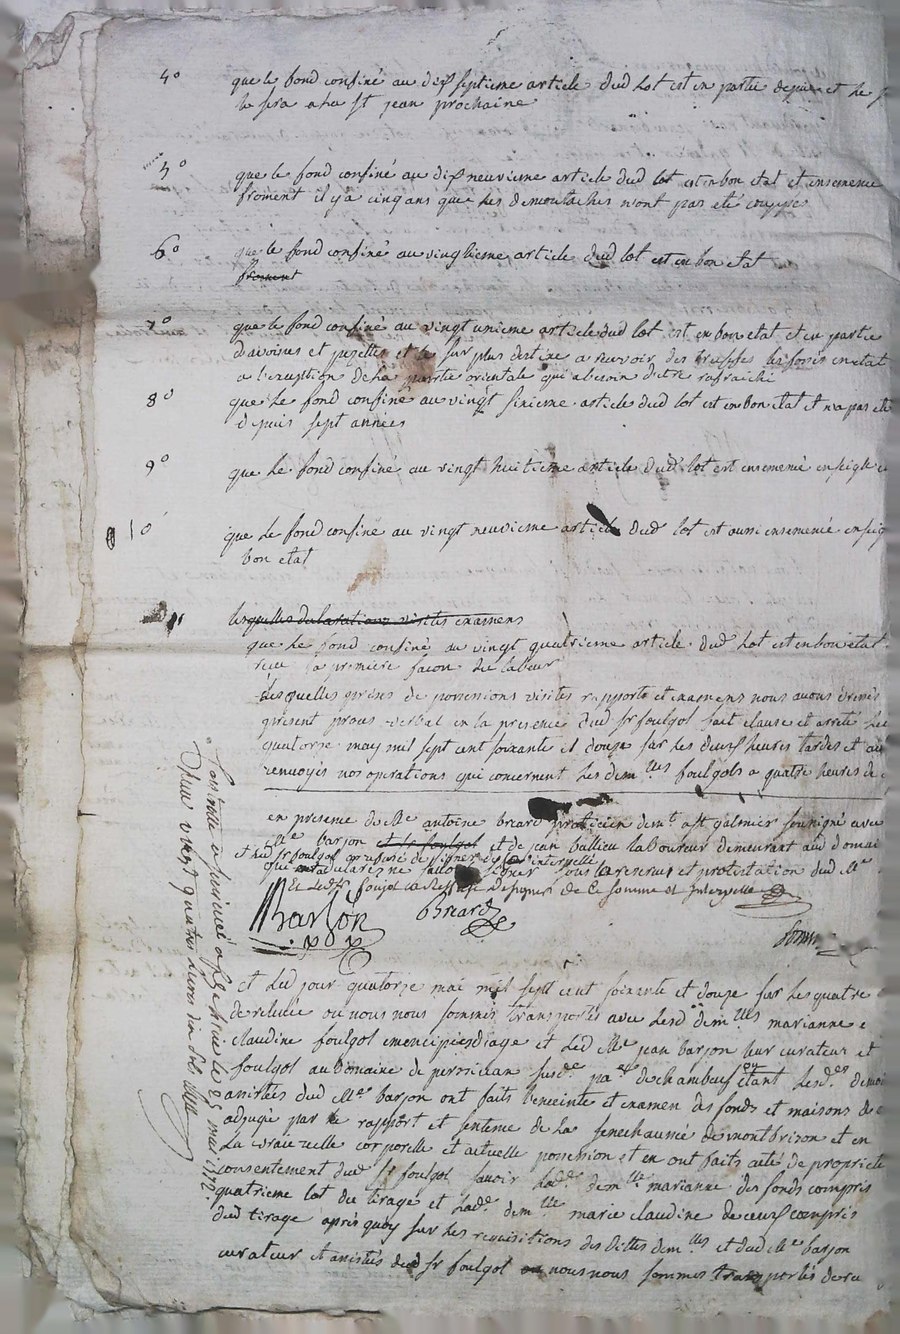 4° que le fond confiné au dix septieme article dud lot est en partie depuis et le
le sera a la St jean prochaine
5° que le fond confiné au dix neuvieme article dud lot est en bon etat et ensemencé
froment il y a cinq ans que les demoulaches n'ont pas eté couppé
6° que le fond confiné au vingtieme article dud lot est en bon etat
froment
7° que le fond confiné au vingt unieme article dud lot est en bon etat et en partie
d'avoines et pezettes et le sur plus destiné a recevoir des truffes les fossés en etat
a l'exception de la partie orientale qui a besoin d'etre rafraichi
8° que le fond confiné au vingt sixieme article dud lot est en bon etat et n'a pas eté
depuis sept années
9° que le fond confiné au vingt huitieme article dud lot est ensemencé en seigle
10° que le fond confiné au vingt neuvieme article dud lot est aussi ensemencé en
bon etat
lesquelles declarations visites examens
11 que le fond confiné au vingt quatrieme article dud lot est en bon etat
recu sa premiere facon de labeur
desquelles prises de possessions visites rapports et examens nous avons
present proces verbal en la presence dud sr foulgol fait clause et arreté le
quatorze may mil sept cent soixante et douze sur les deux heures tardes et
renvoyés nos operations qui concernent les dem.lles foulgols a quatre heures de
en presence de Me antoine breard praticien dem.t a St galmier soussigné avec
Me barjon et sr foulgol et de jean ballieu laboureur demeurant aud domai
et led sr foulgol
sous la reserve et protestation dud Me
Barjon
Breard
et led jour quatorze mai mil sept cent soixante et douze sur les quatre
de relevée ou nous nous sommes transportés avec lesd dem.lles marianne e
claudine foulgol emencipées d'age et led Me jean barjon leur curateur et
foulgol au Domaine de
assistées dud Me barjon ont faits l'enceinte et examen des fonds et maisons de
adjugé par le rapport et sentence de la senechaussée de montbrison et en
la vraie reelle corporelle et actuelle possession et en ont faits acte de propriete
consentement dud sr foulgol savoir lad.e dem.lle marianne des fonds compris
quatrieme lot du tirage et lad.e dem.lle marie claudine de ceux compris
dud tirage après quoy sur les requisitions desdittes dem.lles et dud Me barjon
curateur et assistés dud sr foulgol nous nous sommes transportés
Controllé
le 25 may 1772.
vingt quatre livres dix sols